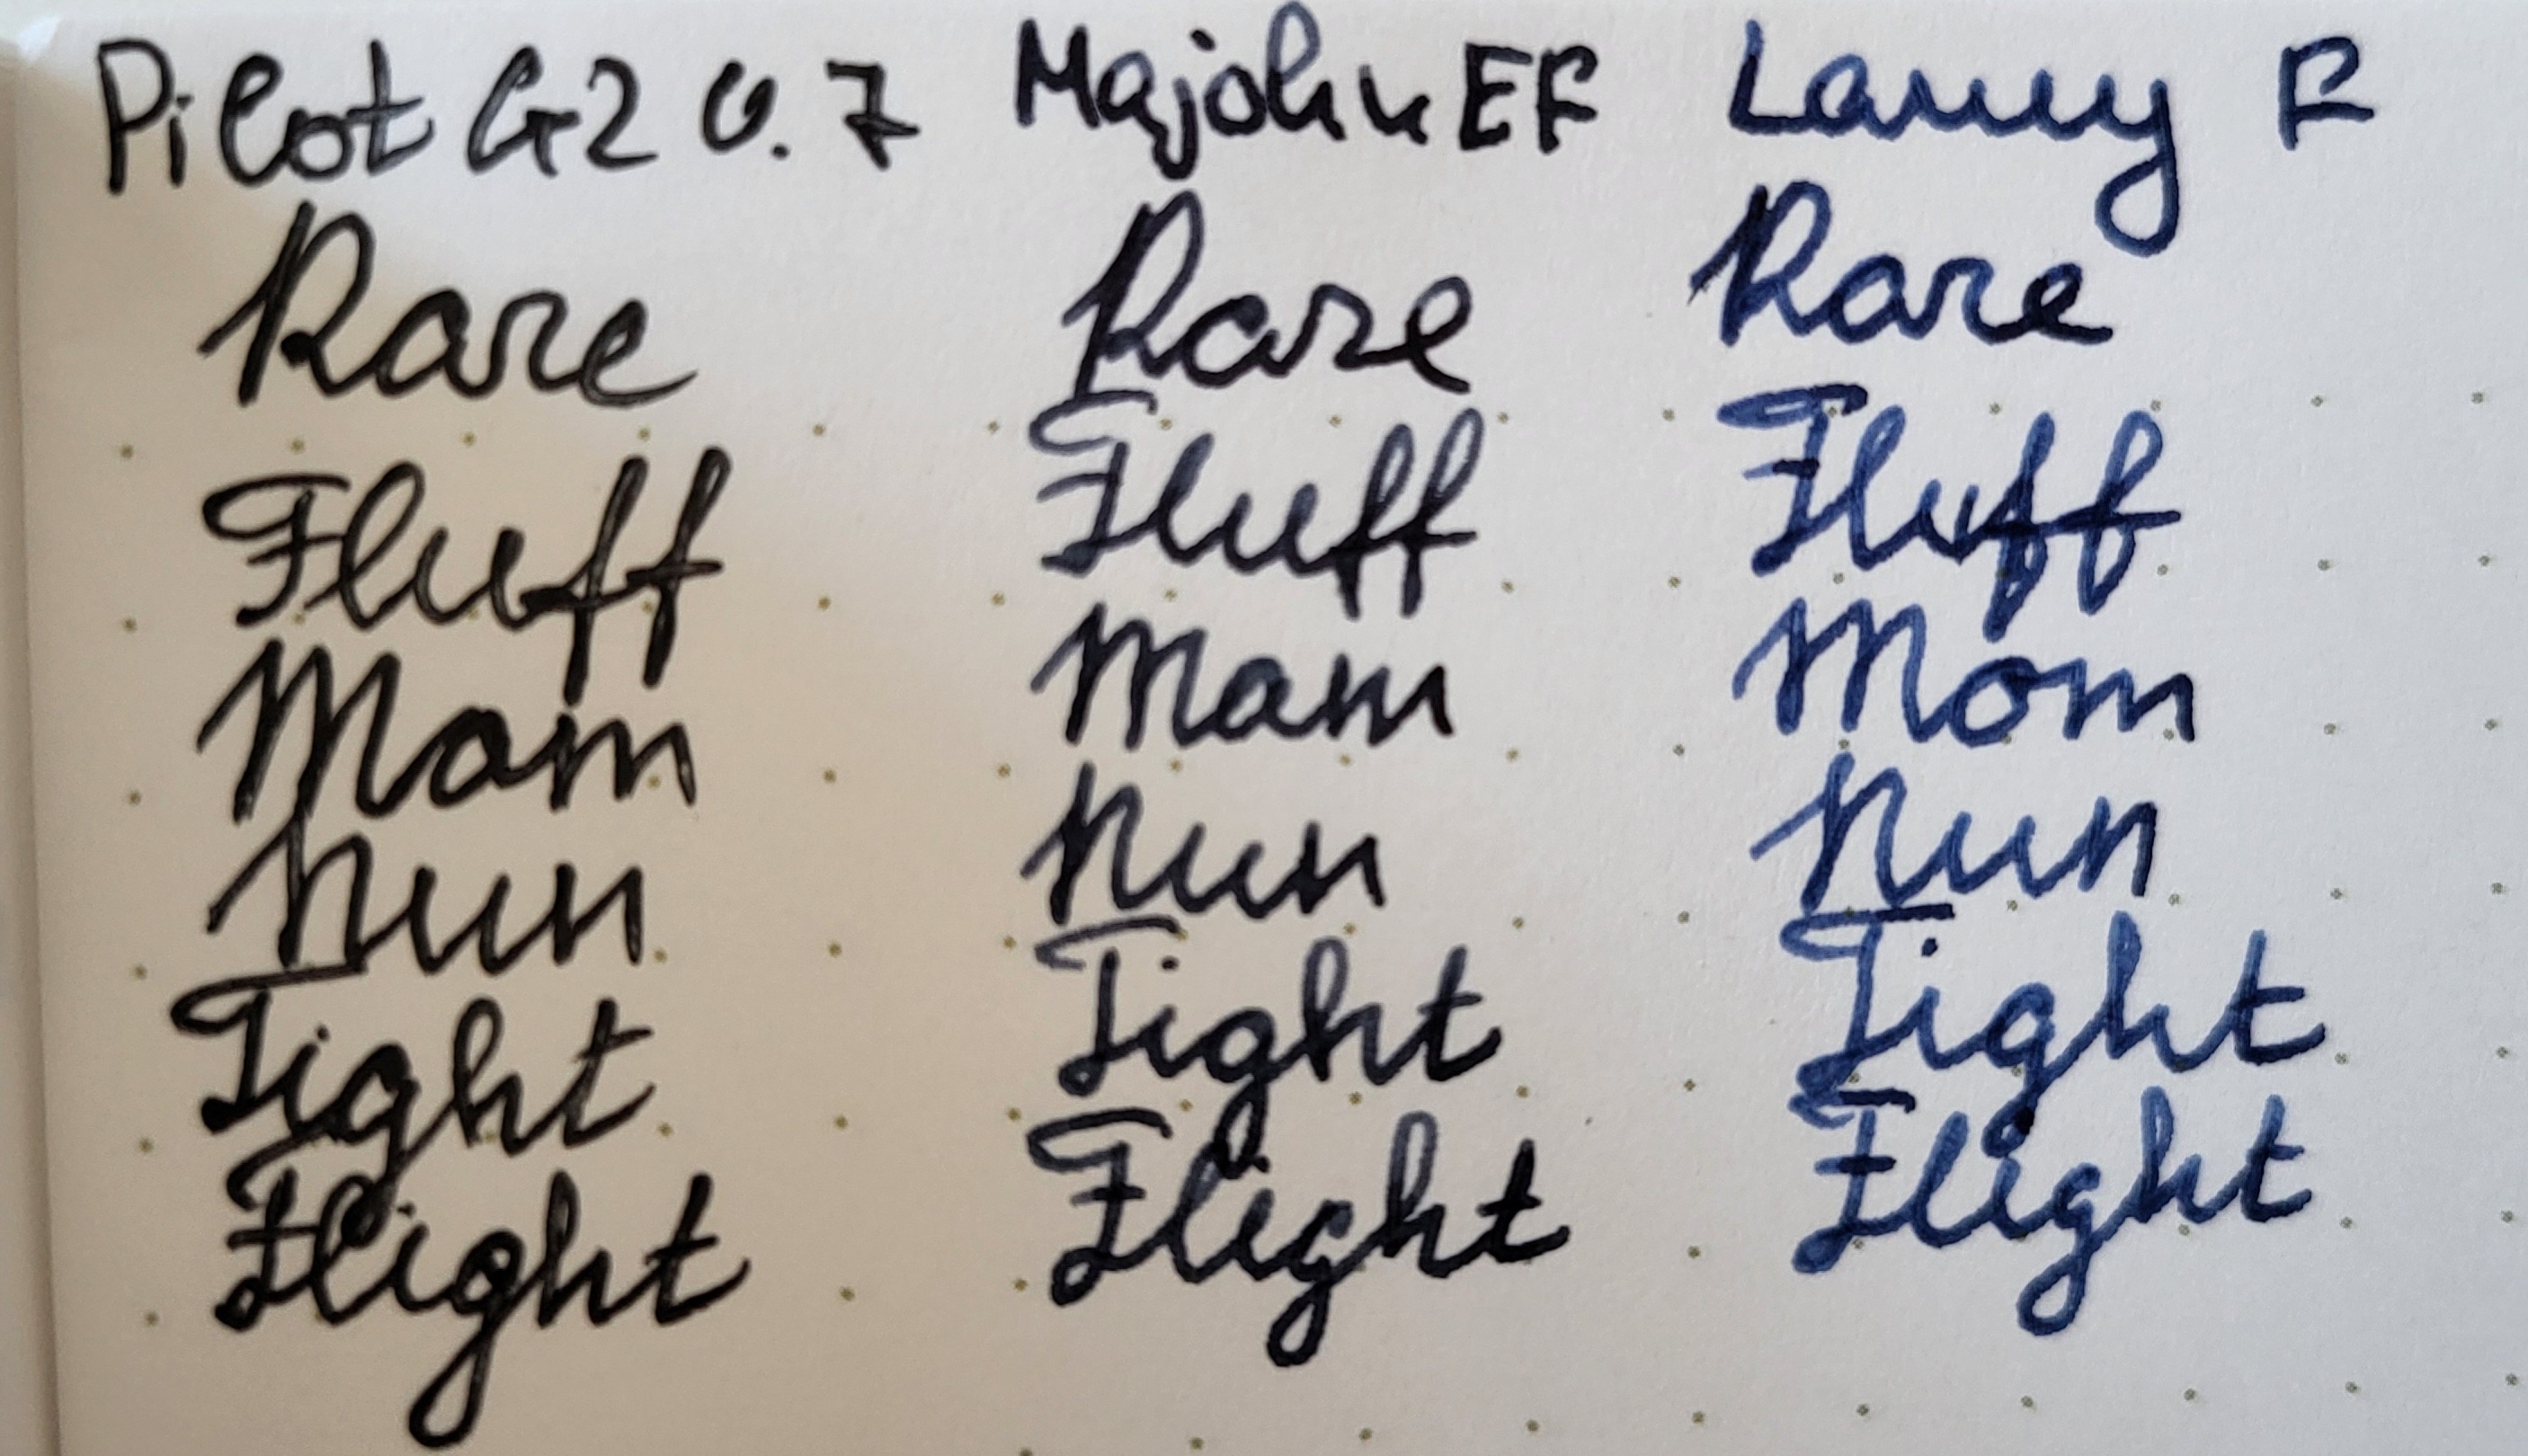 Pilot G2 0.7 Majohn EF Lamy F
Rare Rare Rare
Fluff Fluff Fluff
Mom Mom Mom
Nun Nun Nun
Tight Tight Tight
Flight Flight Flight